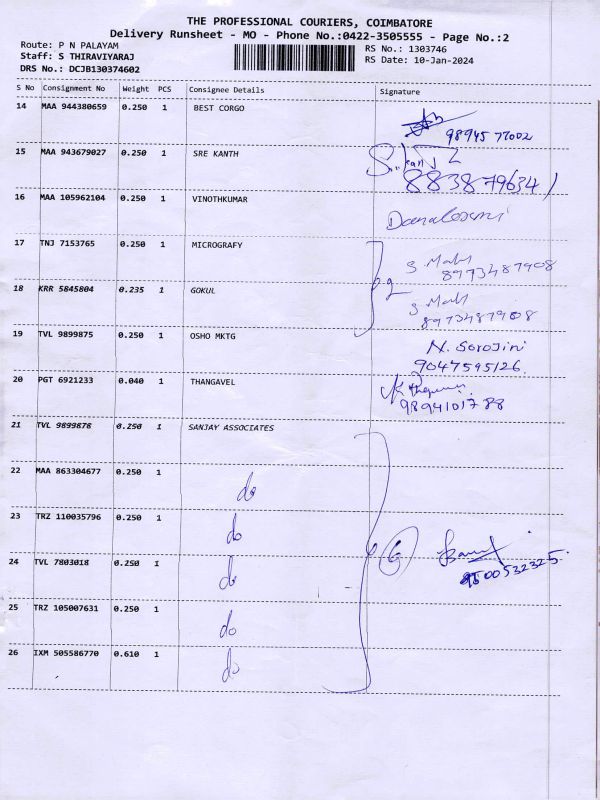 THE PROFESSIONAL COURIERS, COIMBATORE
Delivery Runsheet - MO - Phone No.:0422-3505555 - Page No.:2
Route: P N PALAYAM RS No.: 1303746
Staff: S THIRAVIYARAJ RS Date: 10-Jan-2024
DRS No.: DCJB130374602
S No Consignment No Weight PCS Consignee Details Signature
14 MAA 944380659 0.250 1 BEST CORGO
98945 77002
15 MAA 943679027 0.250 1 SRE KANTH
883879634
16 MAA 105962104 0.250 1 VINOTHKUMAR
17 TNJ 7153765 0.250 1 MICROGRAFY
8973487908
18 KRR 5845804 0.235 1 GOKUL 2
8973487908
19 TVL 9899875 0.250 1 OSHO MKTG N. Sorojini
9047595126
20 PGT 6921233 0.040 1 THANGAVEL
9894101788
21 TVL 9899878 0.250 1 SANJAY ASSOCIATES
22 MAA 863304677 0.250 1 do
23 TRZ 110035796 0.250 1 do
24 TVL 7803018 0.250 1 do 6
9500532325
25 TRZ 105007631 0.250 1 do
26 IXM 505586770 0.610 1 do